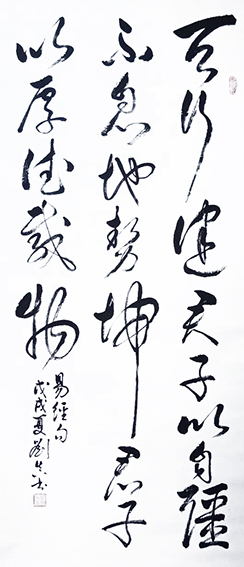 天行健君子以自彊
不息地势坤君子
以厚德载物
易經句
戊戌夏劉